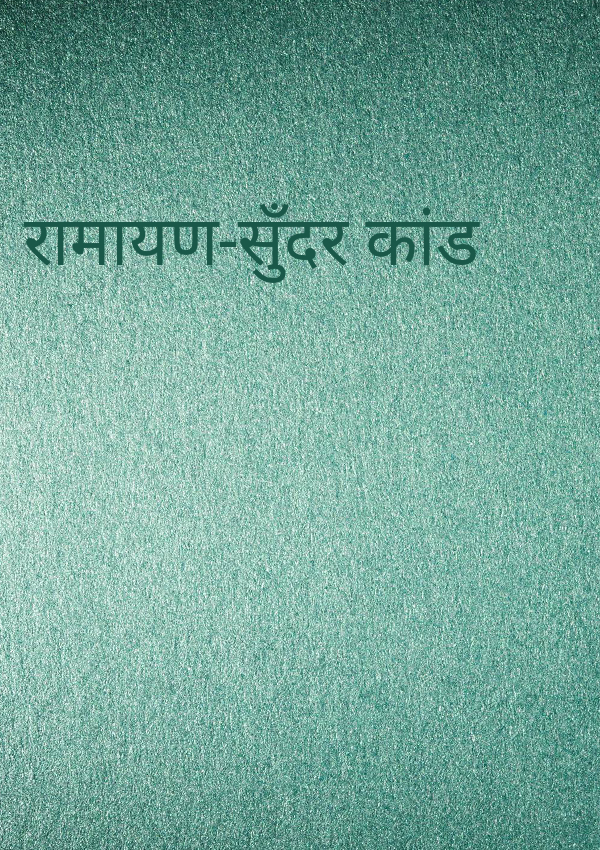 रामायण-सुँदर कांड